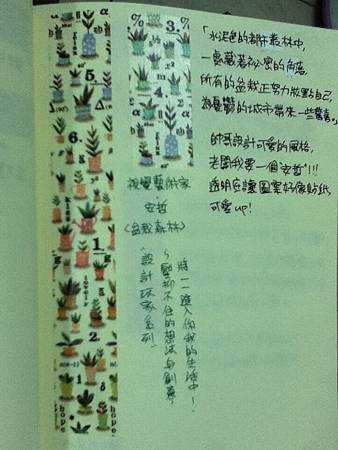 「水泥色的都市叢林中,
一處藏著祕密的角落,
所有的盆栽正努力妝點自己,
為憂鬱的城市帶來一些驚喜。」
帥哥設計可愛的風格,
老闆我要一個"安哲"!!!
透明底讓圖案好像貼紙
可愛up!
視覺藝術家
安哲
<盆栽森林>
將一一進入你我的生活中!
~壓抑不住的想法與創意,
"設計玩家系列"
3.
5.
6.
1.
2.
kiss
lovely
hope